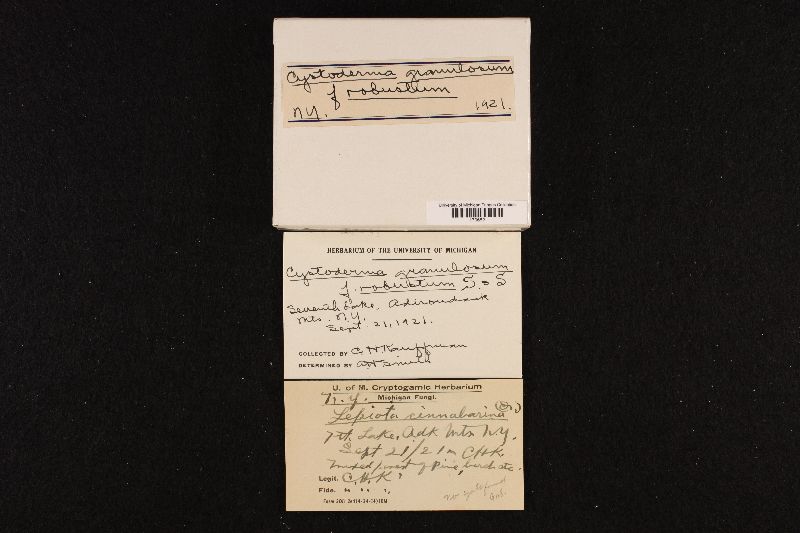 Cystoderma granulosum
f robustum
NY. 1921.
University of Michigan Fungus Collection
HERBARIUM OF THE UNIVERSITY OF MICHIGAN
Cystoderma granulosum
f. robustum S. & S
Seventh Lake, Adirondack
Mts. N.Y.
Sept 21, 1921.
COLLECTED BY C H Kauffman
DETERMINED BY AH Smith
U. of M. Cryptogamic Herbarium
N.Y. Michigan Fungi.
Lepiota cinnabarina
7th Lake, Adk Mts N.Y.
Sept 21/21 CHK.
mixed forest of Pine, birch etc.
Legit. C.H.K.
Fide. " " "